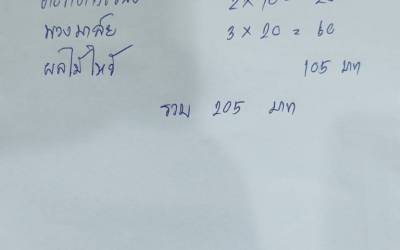 2 × 10 = 20
พวงมาลัย 3 × 20 = 60
ผลไม้ไหว้ 105 บาท
รวม 205 บาท